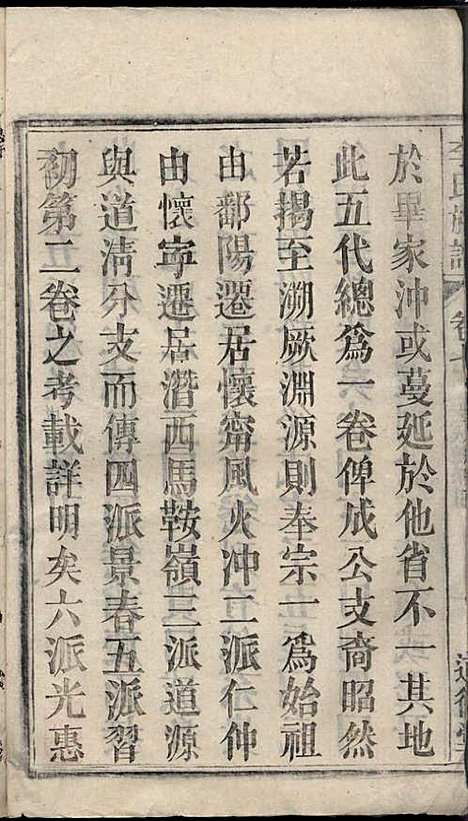 於畢家沖或蔓延於他省不一其地
此五代總爲一卷俾成公支裔昭然
若揭至溯厥淵源則奉宗一爲始祖
由鄱陽遷居懷甯風火沖二派仁仲
由懷寧遷居潛西馬鞍嶺三派道源
與道清分支而傳四派景春五派習
初第二卷之考載詳明矣六派光惠